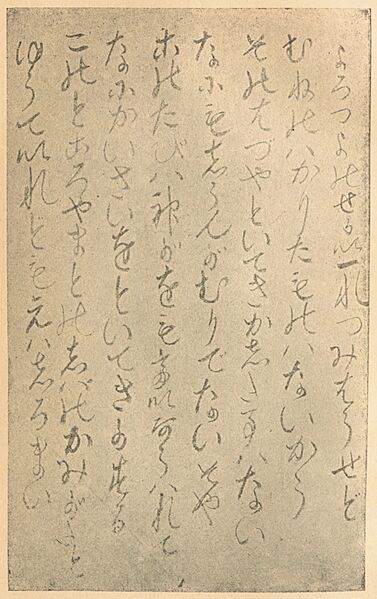 よろつよのせかい一れつみはらせど
むねのハかりたものハないから
そのはづやといてきかした事ハない
なにもしらんがむりでないそや
このたびハ神がをもていあらハれて
なにかいさいをといてきかする
このところやまとのしバのかみがたと
ゆうていれども元ハしろまい